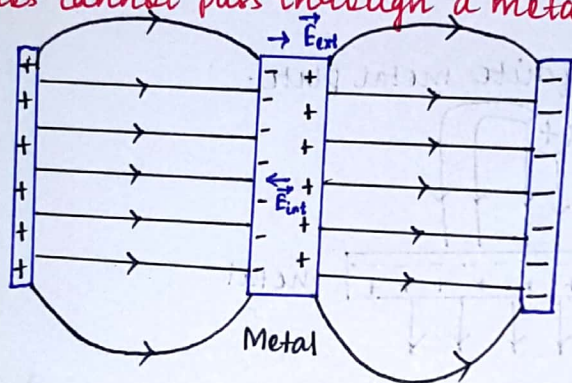 cannot pass through a metal
→ E⃗ext
+ - + -
+ - + -
+ - + -
+ - + -
← E⃗int
+ - + -
+ - + -
Metal